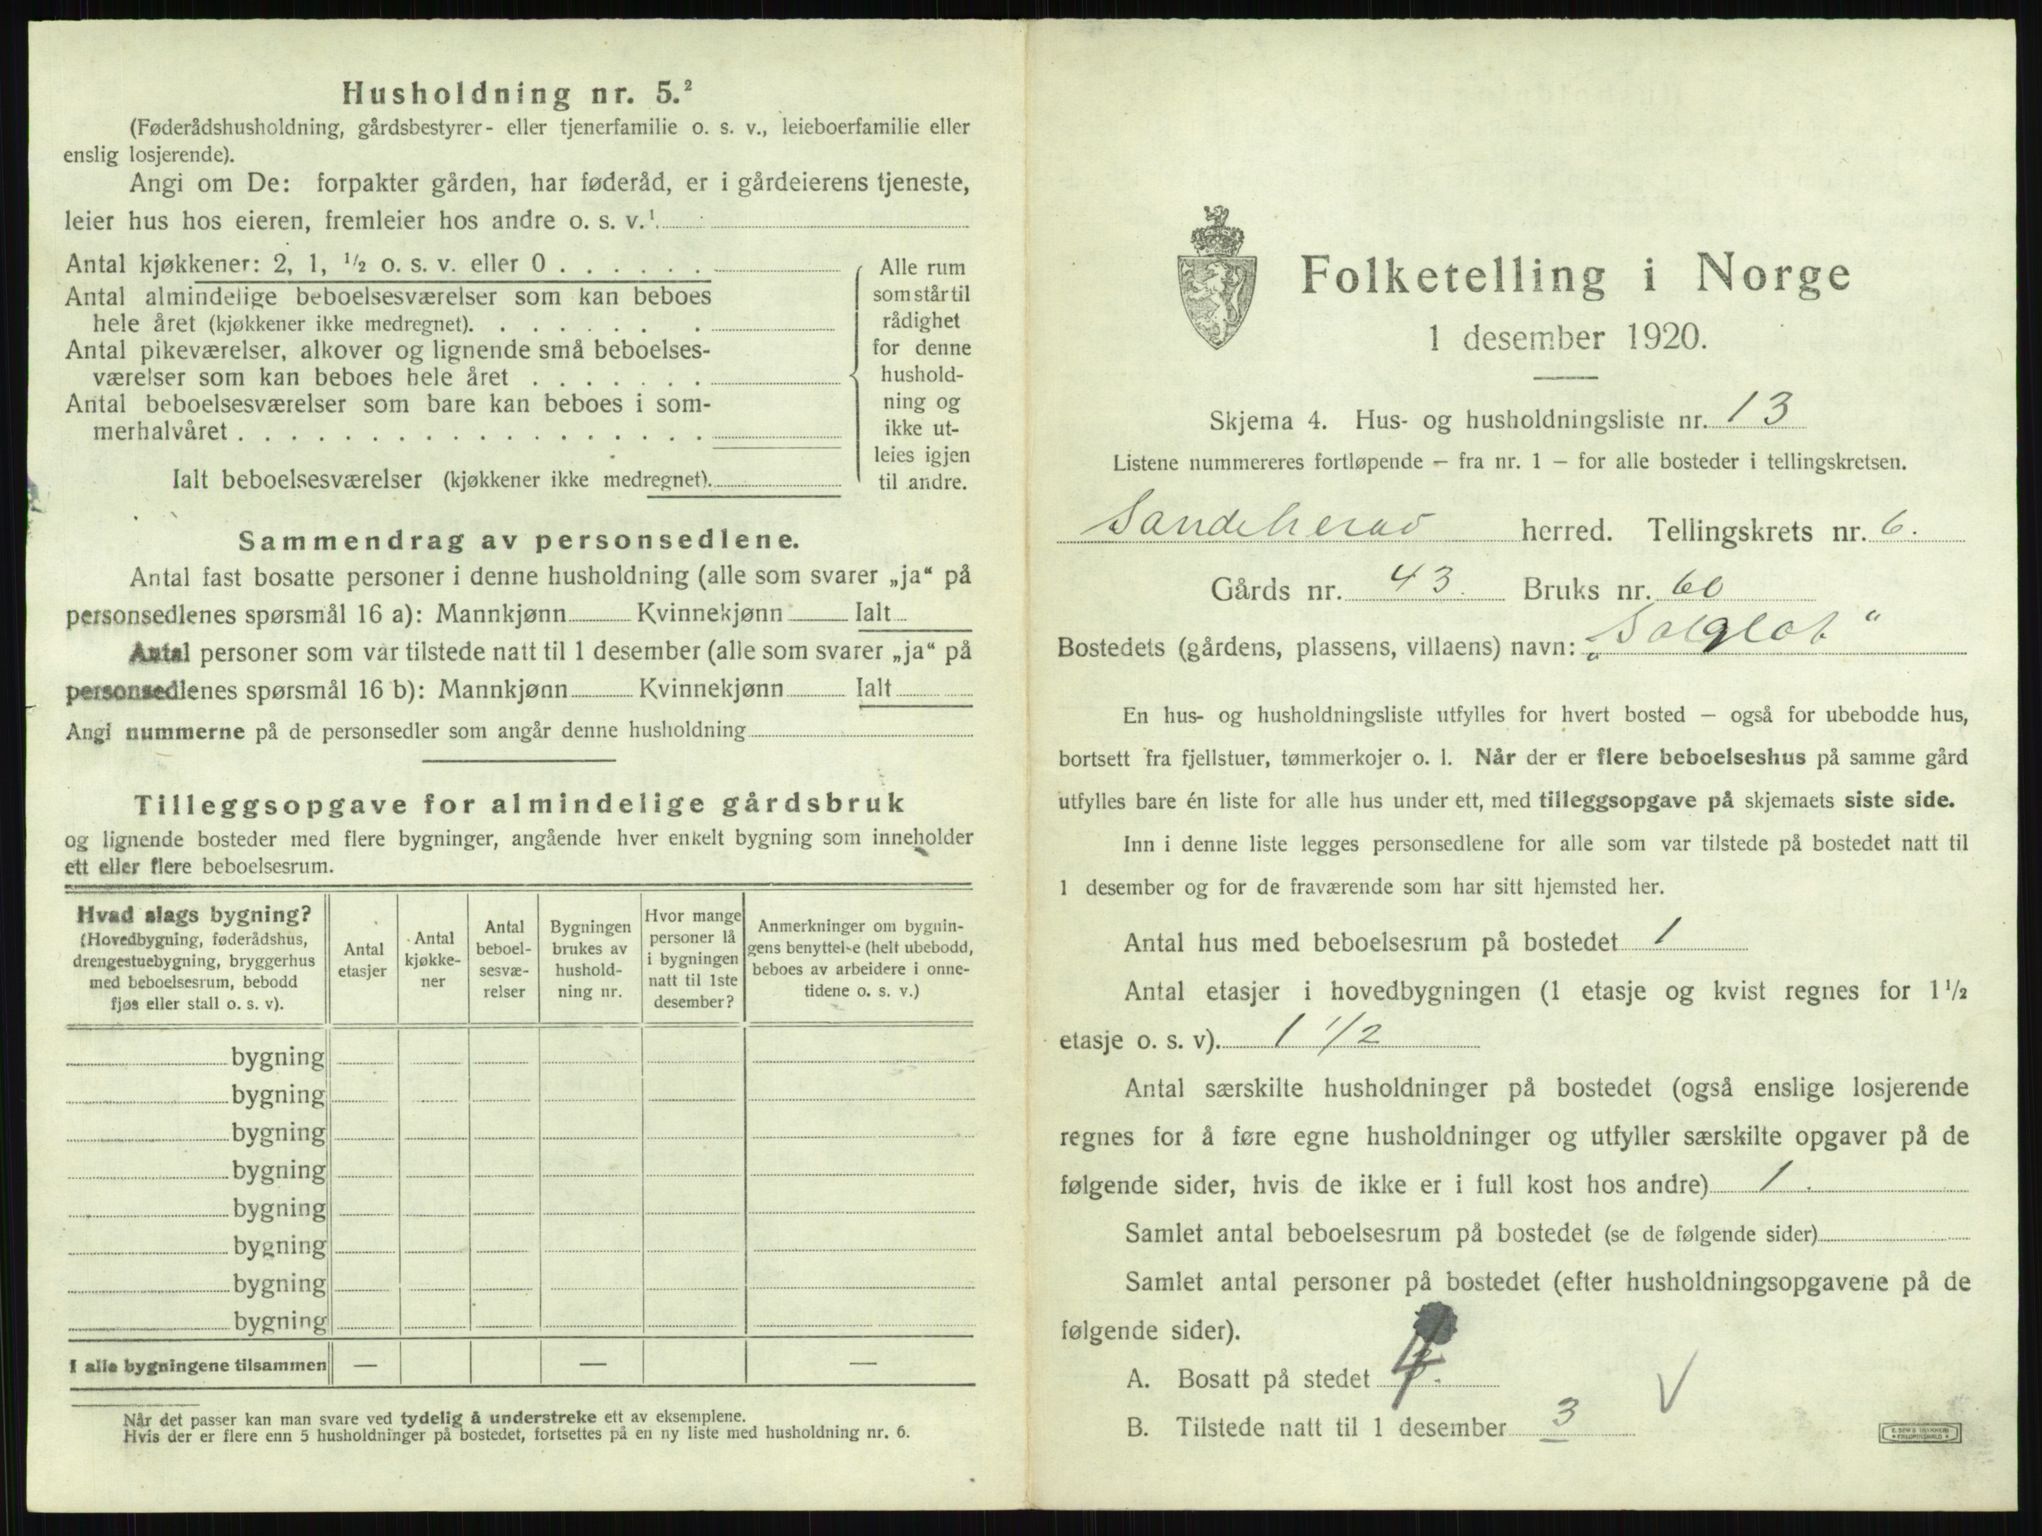 Husholdning nr. 5.²
(Føderådshusholdning, gårdsbestyrer- eller tjenerfamilie o. s. v., leieboerfamilie eller
enslig losjerende).
Angi om De: forpakter gården, har føderåd, er i gårdeierens tjeneste,
leier hus hos eieren, fremleier hos andre o. s. v.¹
Antal kjøkkener: 2, 1, ½ o. s. v. eller 0 . . . . . .
Antal almindelige beboelsesværelser som kan beboes
hele året (kjøkkener ikke medregnet). . . . . . . .
Antal pikeværelser, alkover og lignende små beboelses-
værelser som kan beboes hele året . . . . . . .
Antal beboelsesværelser som bare kan beboes i som-
merhalvåret . . . . . . . . . . . . . . . . . .
Ialt beboelsesværelser (kjøkkener ikke medregnet).
Alle rum
som står til
rådighet
for denne
hushold-
ning og
ikke ut-
leies igjen
til andre.
Sammendrag av personsedlene.
Antal fast bosatte personer i denne husholdning (alle som svarer „ja“ på
personsedlenes spørsmål 16 a): Mannkjønn Kvinnekjønn Ialt
Antal personer som var tilstede natt til 1 desember (alle som svarer „ja“ på
personsedlenes spørsmål 16 b): Mannkjønn Kvinnekjønn Ialt
Angi nummerne på de personsedler som angår denne husholdning
Tilleggsopgave for almindelige gårdsbruk
og lignende bosteder med flere bygninger, angående hver enkelt bygning som inneholder
ett eller flere beboelsesrum.
Hvad slags bygning?
(Hovedbygning, føderådshus,
drengestuebygning, bryggerhus
med beboelsesrum, bebodd
fjøs eller stall o. s. v).
Antal
etasjer
Antal
kjøkke-
ner
Antal
beboel-
sesvæ-
relser
Bygningen
brukes av
hushold-
ning nr.
Hvor mange
personer lå
i bygningen
natt til 1ste
desember?
Anmerkninger om bygnin-
gens benyttelse (helt ubebodd,
beboes av arbeidere i onne-
tidene o. s. v.)
bygning
bygning
bygning
bygning
bygning
bygning
bygning
bygning
I alle bygningene tilsammen — — —
Når det passer kan man svare ved tydelig å understreke ett av eksemplene.
Hvis der er flere enn 5 husholdninger på bostedet, fortsettes på en ny liste med husholdning nr. 6.
Folketelling i Norge
1 desember 1920.
Skjema 4. Hus- og husholdningsliste nr. 13
Listene nummereres fortløpende – fra nr. 1 – for alle bosteder i tellingskretsen.
Sandeherad herred. Tellingskrets nr. 6.
Gårds nr. 43. Bruks nr. 60
Bostedets (gårdens, plassens, villaens) navn: „Solglot“
En hus- og husholdningsliste utfylles for hvert bosted – også for ubebodde hus,
bortsett fra fjellstuer, tømmerkojer o. l. Når der er flere beboelseshus på samme gård
utfylles bare én liste for alle hus under ett, med tilleggsopgave på skjemaets siste side.
Inn i denne liste legges personsedlene for alle som var tilstede på bostedet natt til
1 desember og for de fraværende som har sitt hjemsted her.
Antal hus med beboelsesrum på bostedet 1
Antal etasjer i hovedbygningen (1 etasje og kvist regnes for 1½
etasje o. s. v). 1 1/2
Antal særskilte husholdninger på bostedet (også enslige losjerende
regnes for å føre egne husholdninger og utfyller særskilte opgaver på de
følgende sider, hvis de ikke er i full kost hos andre) 1.
Samlet antal beboelsesrum på bostedet (se de følgende sider)
Samlet antal personer på bostedet (efter husholdningsopgavene på de
følgende sider).
A. Bosatt på stedet 4.
B. Tilstede natt til 1 desember 3